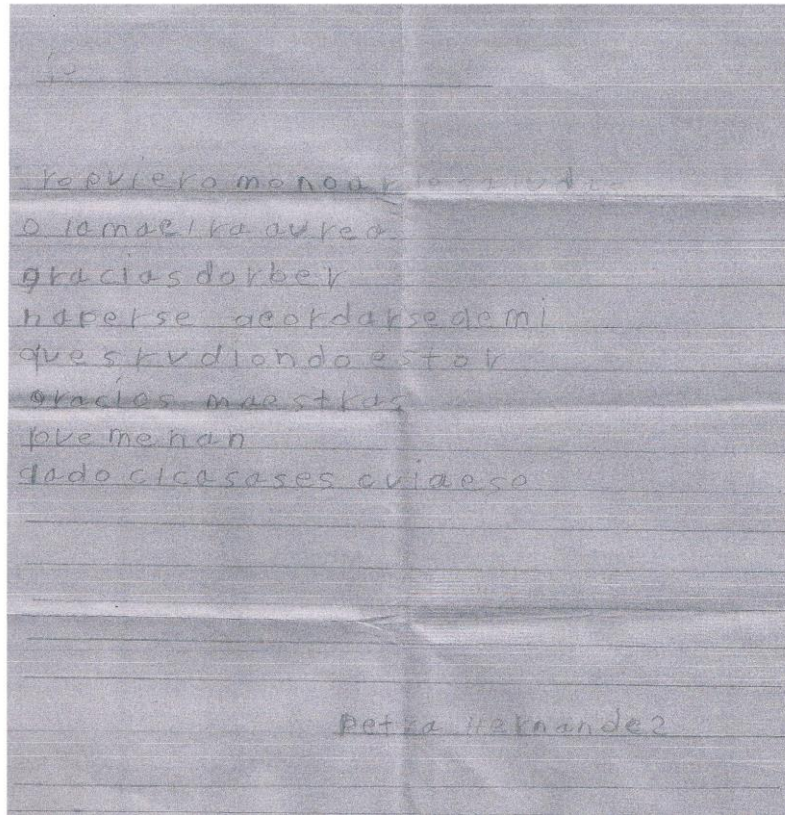 ropuieromonoar
o lamaeiraaurea
graciasdorber
haperse acordarsedemi
queskudiondoestor
gracios maestras
puemenan
dadoclcasases cuiaeso
petra Hernandez